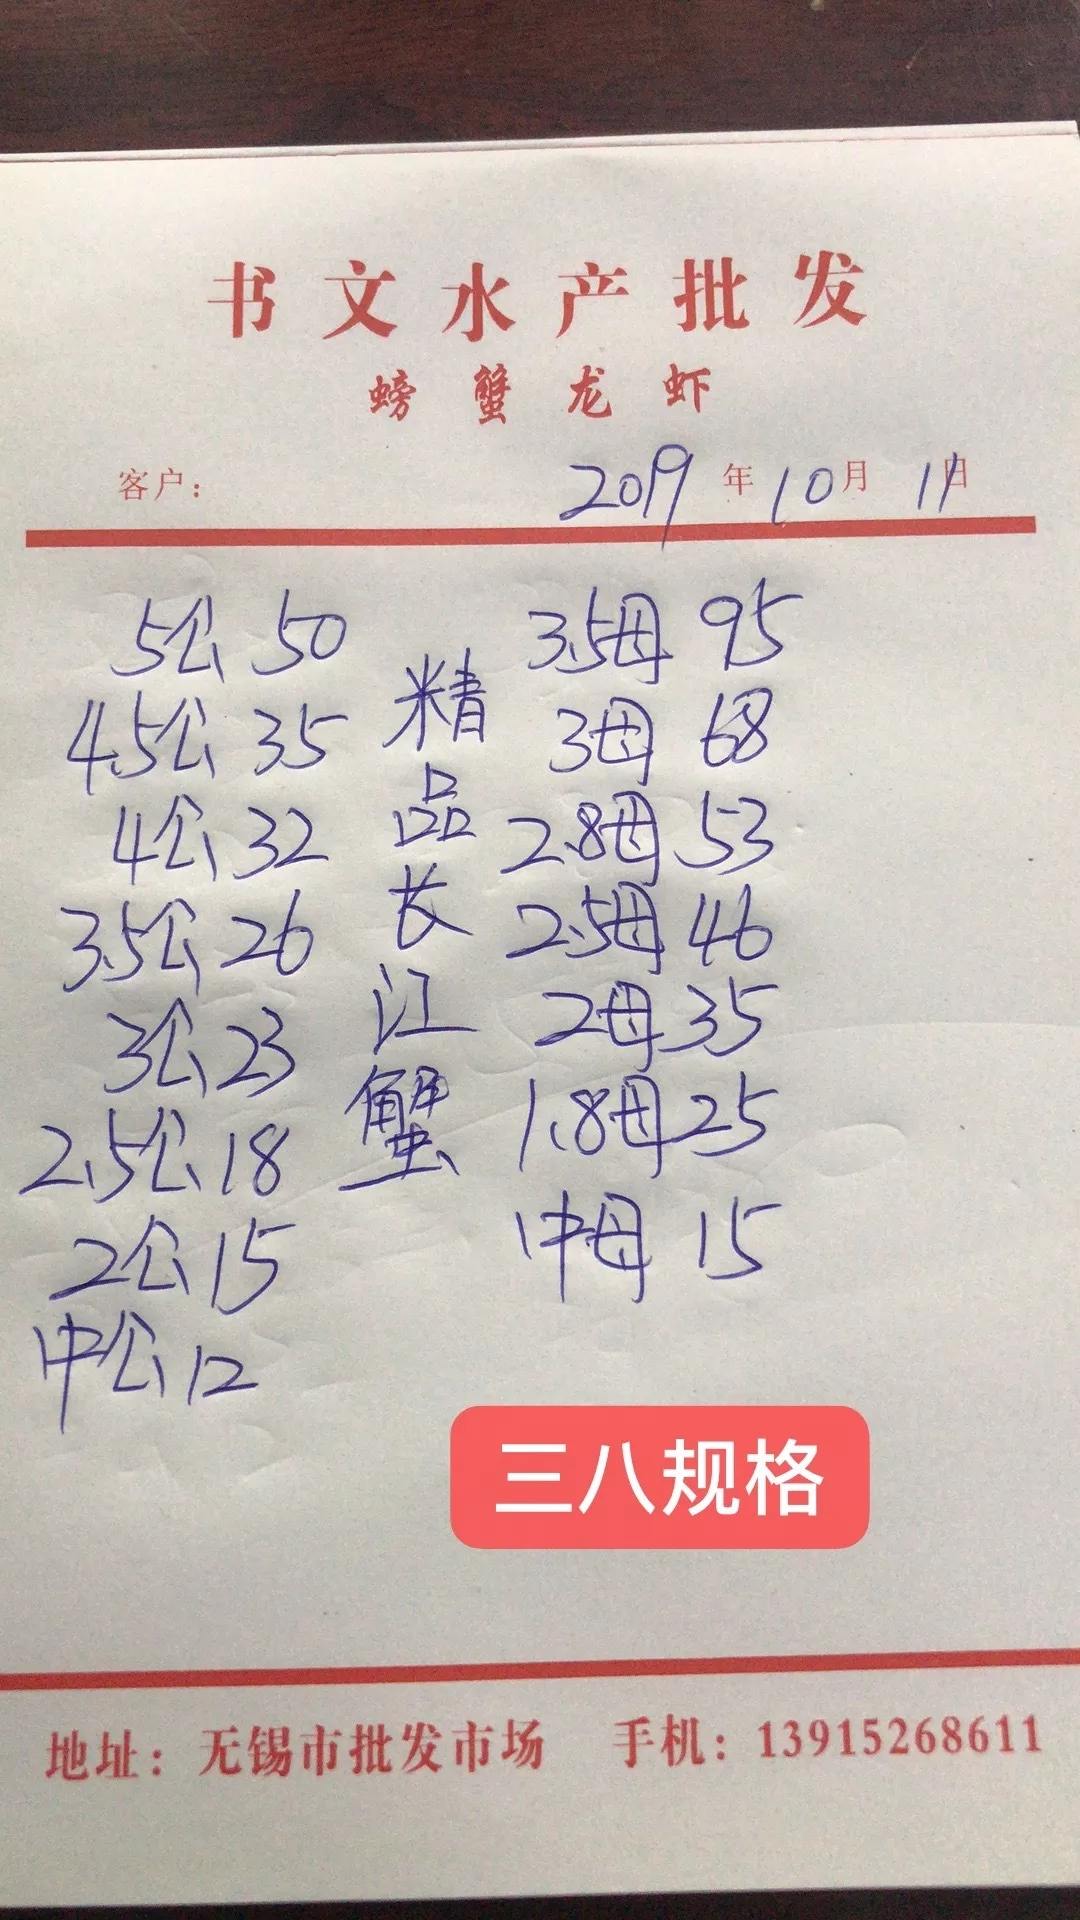 书文水产批发
螃蟹龙虾
客户： 2019年10月11日
5公 50
4.5公 35
4公 32
3.5公 26
3公 23
2.5公 18
2公 15
中公 12
精品长江蟹
3.5母 95
3母 68
2.8母 53
2.5母 46
2母 35
1.8母 25
中母 15
三八规格
地址：无锡市批发市场 手机：13915268611